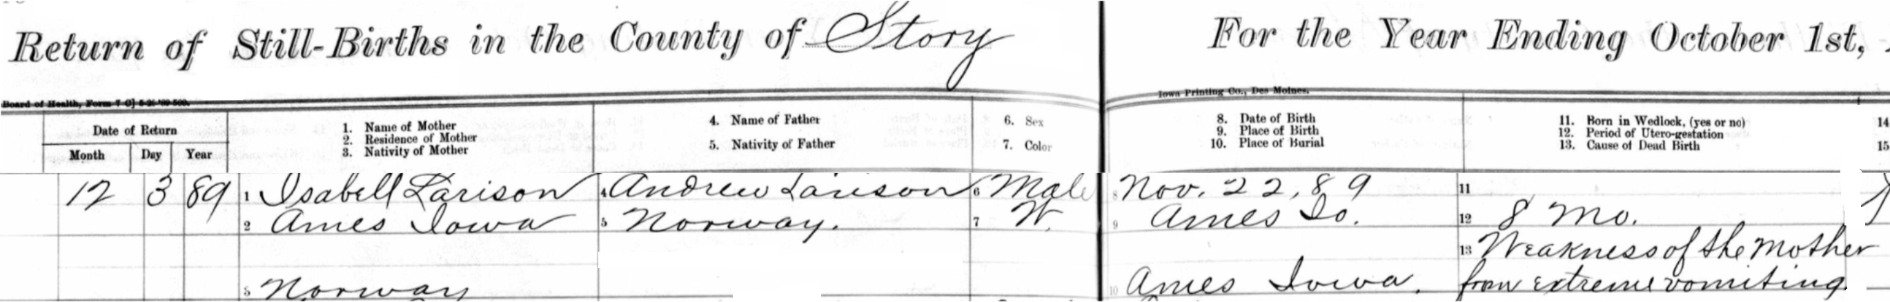 Return of Still-Births in the County of Story For the Year Ending October 1st,
Board of Health, Form
Iowa Printing Co., Des Moines.
Date of Return
Month Day Year
1. Name of Mother
2. Residence of Mother
3. Nativity of Mother
4. Name of Father
5. Nativity of Father
6. Sex
7. Color
8. Date of Birth
9. Place of Birth
10. Place of Burial
11. Born in Wedlock, (yes or no)
12. Period of Utero-gestation
13. Cause of Dead Birth
14
15
12 3 89 1 Isabell Larison 4 Andrew Larison 6 Male 8 Nov. 22, 89 11
2 Ames Iowa 5 Norway. 7 W. 9 Ames Io. 12 8 Mo.
13 Weakness of the Mother
3 Norway 10 Ames Iowa. from extreme vomiting.